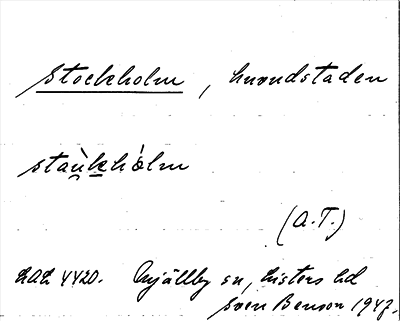 Stockholm, huvudstaden
staù̯khólm
(A.T.)
LAL 4420. Mjällby sn, Listers hd
Sven Benson 1947.